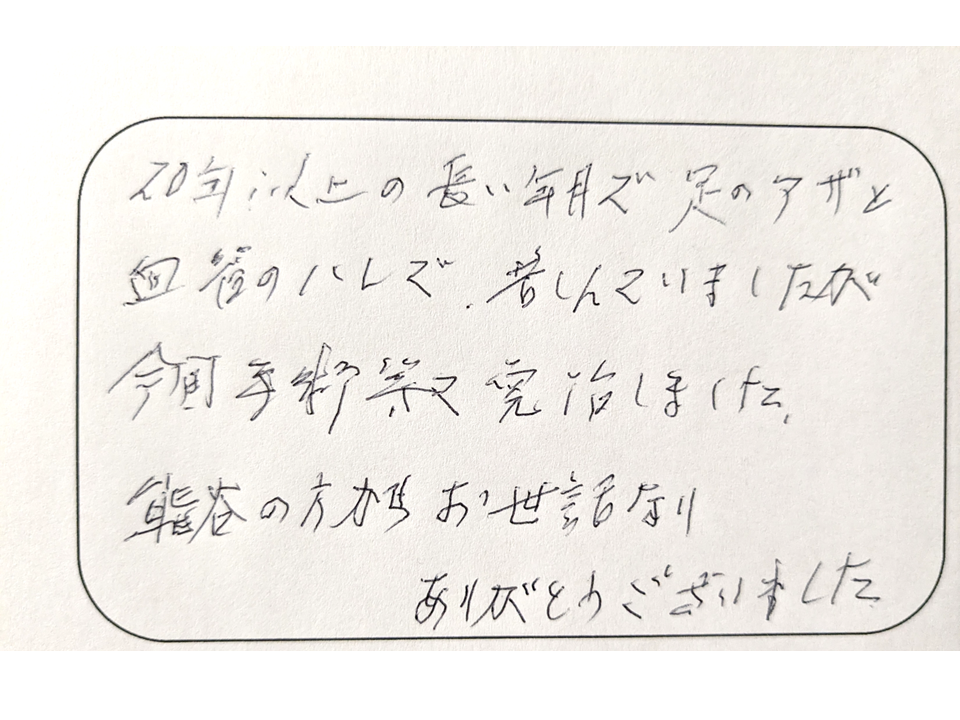 20年以上の長い年月で足のアザと
血管のハレで、苦しんでいましたが
今回手術等で完治しました。
熊谷の方からお世話なり
ありがとうございました